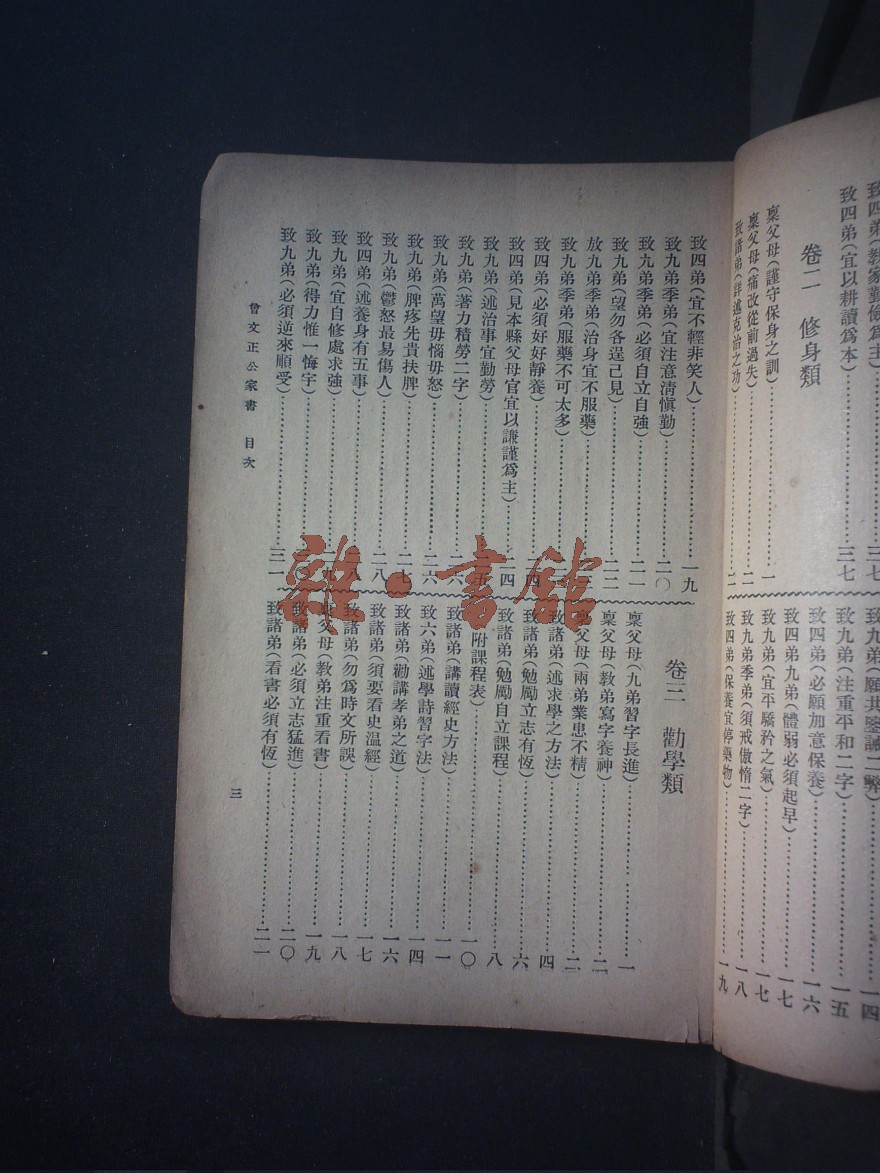 致四弟（教家勤儉爲主）……三七
致四弟（宜以耕讀爲本）……三七
卷二　修身類
稟父母（謹守保身之訓）……一
稟父母（痛改從前過失）……二
致諸弟（詳述克治之功）……二
致九弟（願共鑒誡二弊）……一四
致九弟（注重平和二字）……一五
致四弟（必願加意保養）……一六
致四弟九弟（體弱必須起早）……一七
致九弟（宜平驕矜之氣）……一七
致九弟季弟（須戒傲惰二字）……一八
致四弟（保養宜停藥物）……一九
致四弟（宜不輕非笑人）……一九
致九弟季弟（宜注意清愼勤）……二〇
致九弟季弟（必須自立自強）……二一
致九弟（望勿各逞己見）……二二
放九弟季弟（治身宜不服藥）
致九弟季弟（服藥不可太多）
致四弟（必須好好靜養）……二四
致四弟（見本縣父母官宜以謙謹爲主）……二四
致九弟（述治事宜勤勞）……二五
致九弟（著力積勞二字）……二六
致九弟（萬望毋惱毋怒）……二六
致九弟（脾疼先貴扶脾）……二七
致九弟（鬱怒最易傷人）……二八
致四弟（述養身有五事）……二八
致九弟（宜自修處求強）……二九
致九弟（得力惟一悔字）
致九弟（必須逆來順受）……三一
卷三　勸學類
稟父母（九弟習字長進）……一
稟父母（教弟寫字養神）……二
稟父母（兩弟業患不精）……二
致諸弟（述求學之方法）……四
致諸弟（勉勵立志有恆）……六
致諸弟（勉勵自立課程）……八
（附課程表）……一〇
致諸弟（講讀經史方法）……一一
致六弟（述學詩習字法）……一四
致諸弟（勸講孝弟之道）……一六
致諸弟（須要看史溫經）……一七
致諸弟（勿爲時文所誤）……一八
稟父母（教弟注重看書）……一九
致諸弟（必須立志猛進）……二〇
致諸弟（看書必須有恆）……二一
曾文正公家書　目次
三
雜·書館